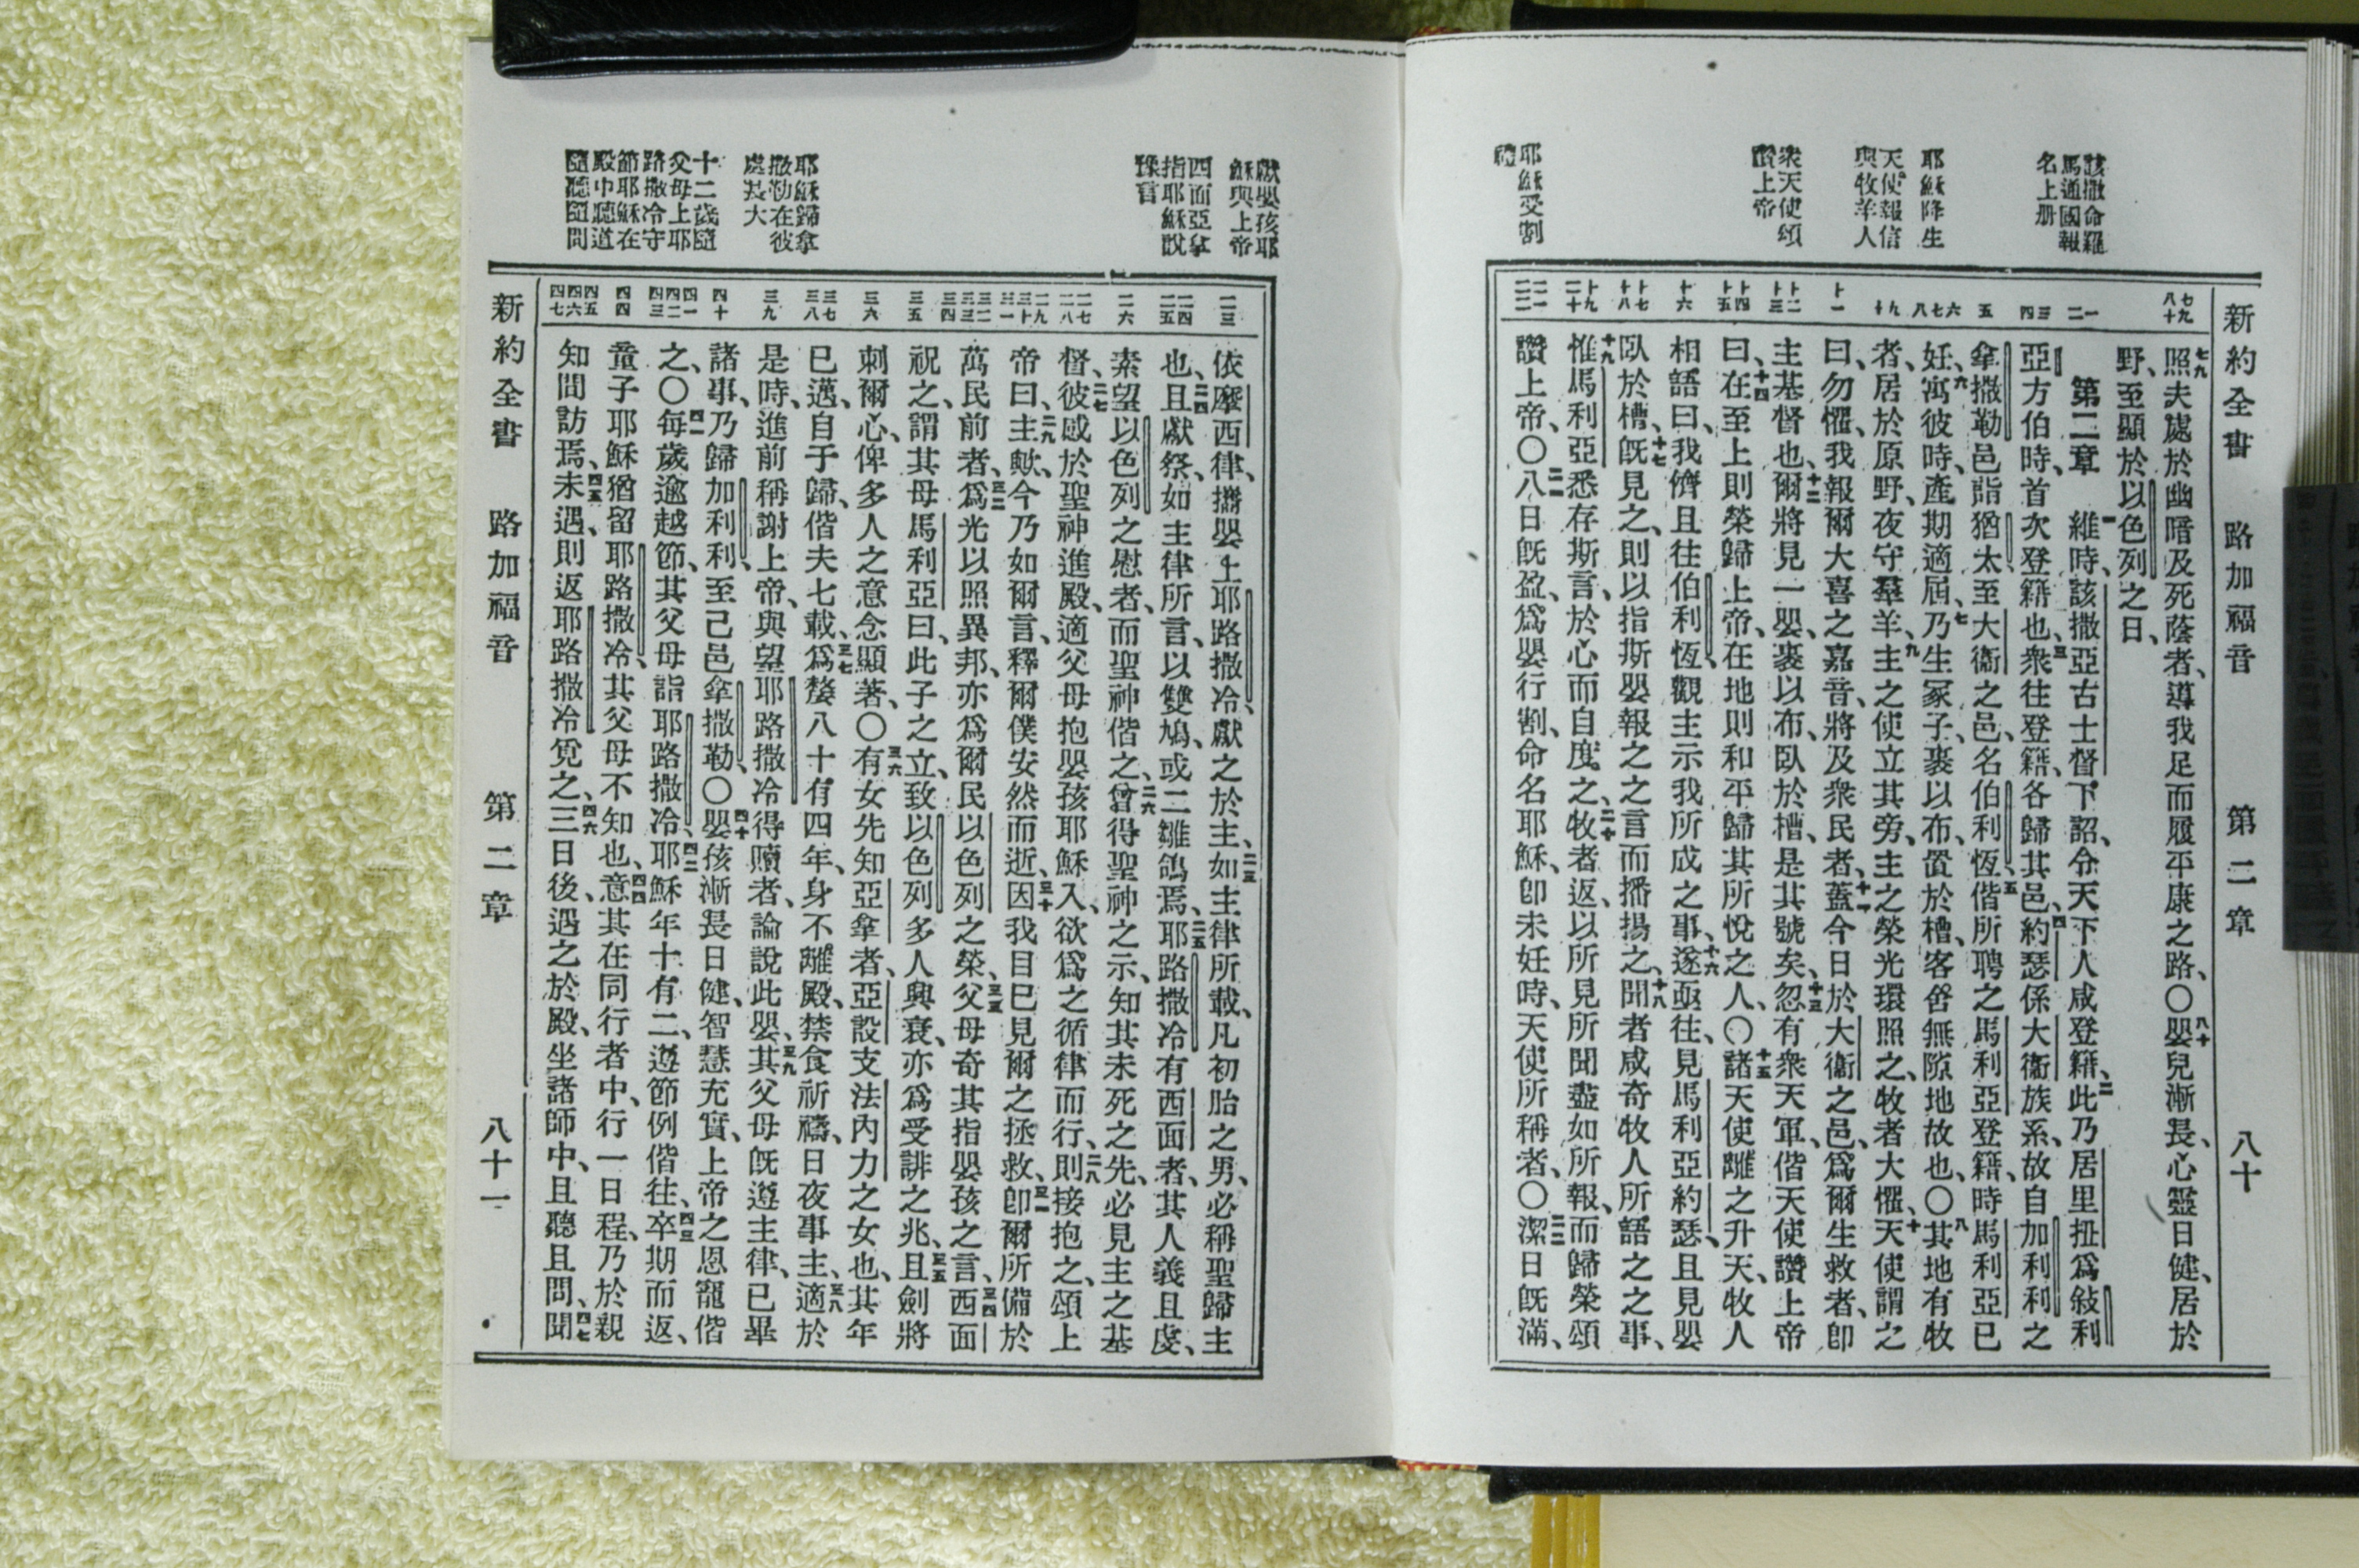 新約全書　路加福音　第二章　八十
該撒命羅
馬通國報
名上册
耶穌降生
天使報信
與牧羊人
衆天使頌
讚上帝
耶穌受割
禮
七九 八十
一 二
三 四
五
六 七 八
九 十
十一
十二 十三
十四 十五
十六
十七 十八
十九 二十
二一 二二
七九照夫處於幽暗及死蔭者、導我足而履平康之路、〇八十嬰兒漸長、心靈日健、居於
野、至顯於以色列之日、
第二章　一維時、該撒亞古士督下詔、令天下人咸登籍、二此乃居里扭爲敍利
亞方伯時、首次登籍也、三衆往登籍、各歸其邑、四約瑟係大衞族系、故自加利利之
拿撒勒邑詣猶太至大衞之邑、名伯利恆、五偕所聘之馬利亞登籍、時馬利亞已
妊、六寓彼時、產期適屆、七乃生冢子、裹以布、置於槽、客舍無隙地故也、〇八其地有牧
者、居於原野、夜守羣羊、九主之使立其旁、主之榮光環照之、牧者大懼、十天使謂之
曰、勿懼、我報爾大喜之嘉音、將及衆民者、十一蓋今日於大衞之邑、爲爾生救者、卽
主基督也、十二爾將見一嬰、裹以布、臥於槽、是其號矣、十三忽有衆天軍、偕天使讚上帝
曰、十四在至上則榮歸上帝、在地則和平歸其所悅之人、〇十五諸天使離之升天、牧人
相語曰、我儕且往伯利恆、觀主示我所成之事、十六遂亟往、見馬利亞約瑟、且見嬰
臥於槽、十七旣見之、則以指斯嬰報之之言而播揚之、十八聞者咸奇牧人所語之事、
十九惟馬利亞悉存斯言、於心而自度之、二十牧者返、以所見所聞盡如所報、而歸榮頌
讚上帝、〇二一八日旣盈、爲嬰行割、命名耶穌、卽未妊時、天使所稱者、〇二二潔日旣滿、
獻嬰孩耶
穌與上帝
四面亞拿
指耶穌說
豫言
耶穌歸拿
撒勒在彼
處長大
十二歲隨
父母上耶
路撒冷守
節耶穌在
殿中聽道
隨聽隨問
二三
二四 二五
二六
二七 二八
二九 三十 三一
三二 三三 三四
三五
三六
三七 三八
三九
四十
四一 四二 四三
四四
四五 四六 四七
依摩西律、攜嬰上耶路撒冷、獻之於主、二三如主律所載、凡初胎之男、必稱聖歸主
也、二四且獻祭、如主律所言、以雙鳩、或二雛鴿焉、二五耶路撒冷有西面者、其人義且虔、
素望以色列之慰者、而聖神偕之、二六曾得聖神之示、知其未死之先、必見主之基
督、二七彼感於聖神進殿、適父母抱嬰孩耶穌入、欲爲之循律而行、二八則接抱之、頌上
帝曰、二九主歟、今乃如爾言、釋爾僕安然而逝、三十因我目已見爾之拯救、三一卽爾所備於
萬民前者、三二爲光以照異邦、亦爲爾民以色列之榮、三三父母奇其指嬰孩之言、三四西面
祝之、謂其母馬利亞曰、此子之立、致以色列多人興衰、亦爲受誹之兆、三五且劍將
刺爾心、俾多人之意念顯著、〇三六有女先知亞拿者、亞設支法內力之女也、其年
已邁、自于歸、偕夫七載、三七爲嫠八十有四年、身不離殿、禁食祈禱、日夜事主、三八適於
是時、進前稱謝上帝、與望耶路撒冷得贖者、論說此嬰、三九其父母旣遵主律、已畢
諸事、乃歸加利利、至己邑拿撒勒、〇四十嬰孩漸長日健、智慧充實、上帝之恩寵偕
之、〇四一每歲逾越節、其父母詣耶路撒冷、四二耶穌年十有二、遵節例偕往、四三卒期而返、
童子耶穌猶留耶路撒冷、其父母不知也、四四意其在同行者中、行一日程、乃於親
知間訪焉、四五未遇、則返耶路撒冷覓之、四六三日後、遇之於殿、坐諸師中、且聽且問、四七聞
新約全書　路加福音　第二章　八十一